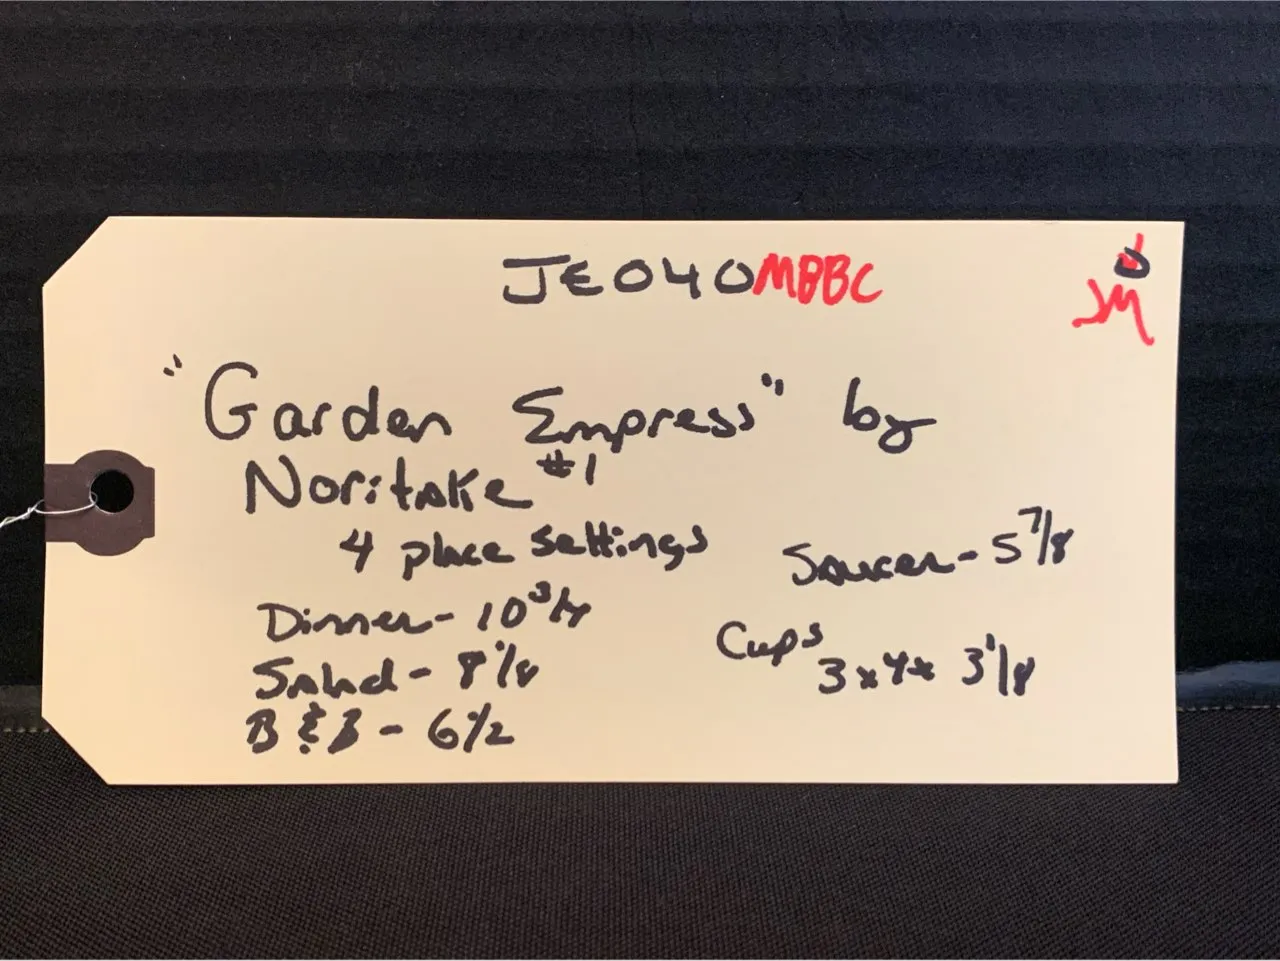 JE040MBBC
JM
"Garden Empress" by
Noritake #1
4 place settings
Dinner - 10 3/4
Salad - 8 1/8
B & B - 6 1/2
Saucer - 5 7/8
Cups
3 x 4 x 3 1/8